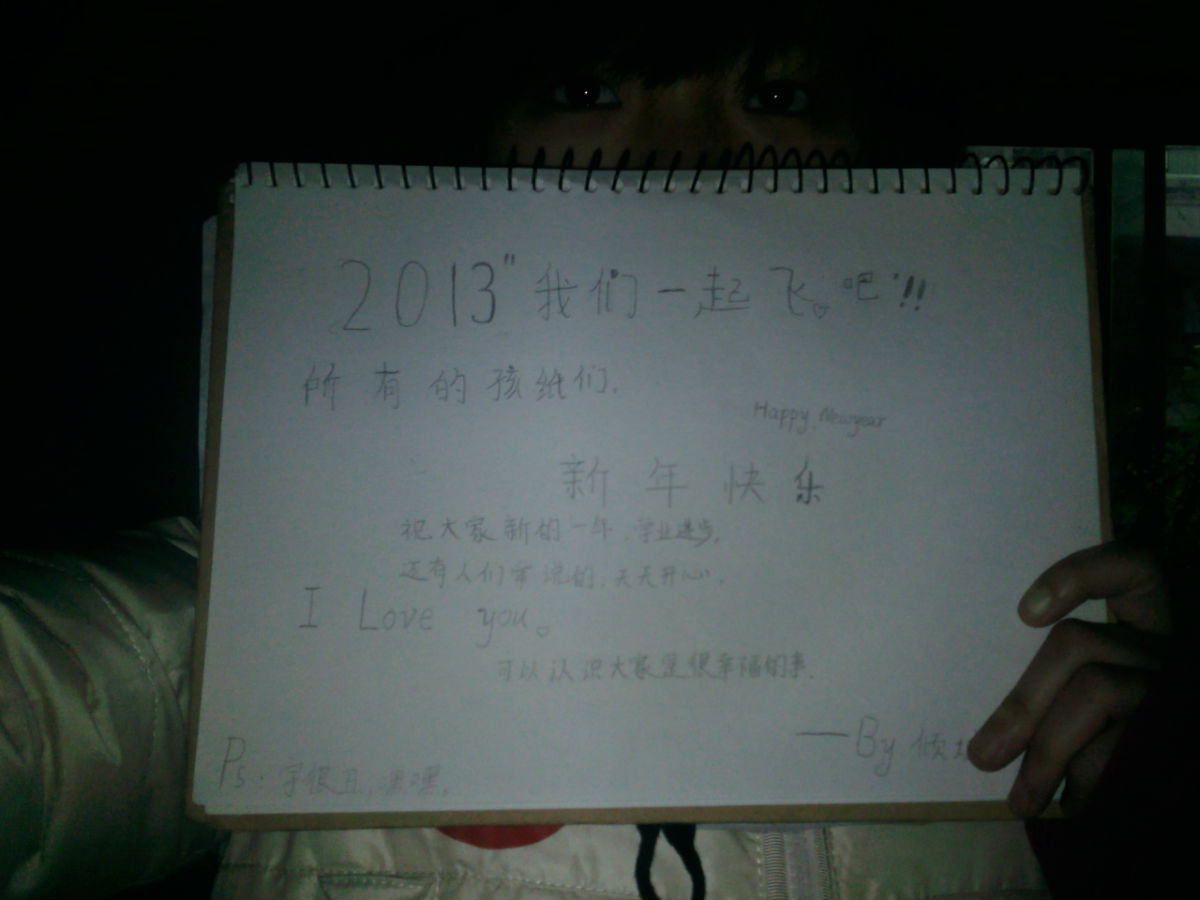 2013" 我们一起飞。吧!!!
所有的孩纸们.
Happy Newyear
新年快乐
祝大家新的一年.学业进步.
还有人们常说的.天天开心.
I Love you。
可以认识大家是很幸福的事.
——By 倾
Ps:字很丑.嘿嘿.